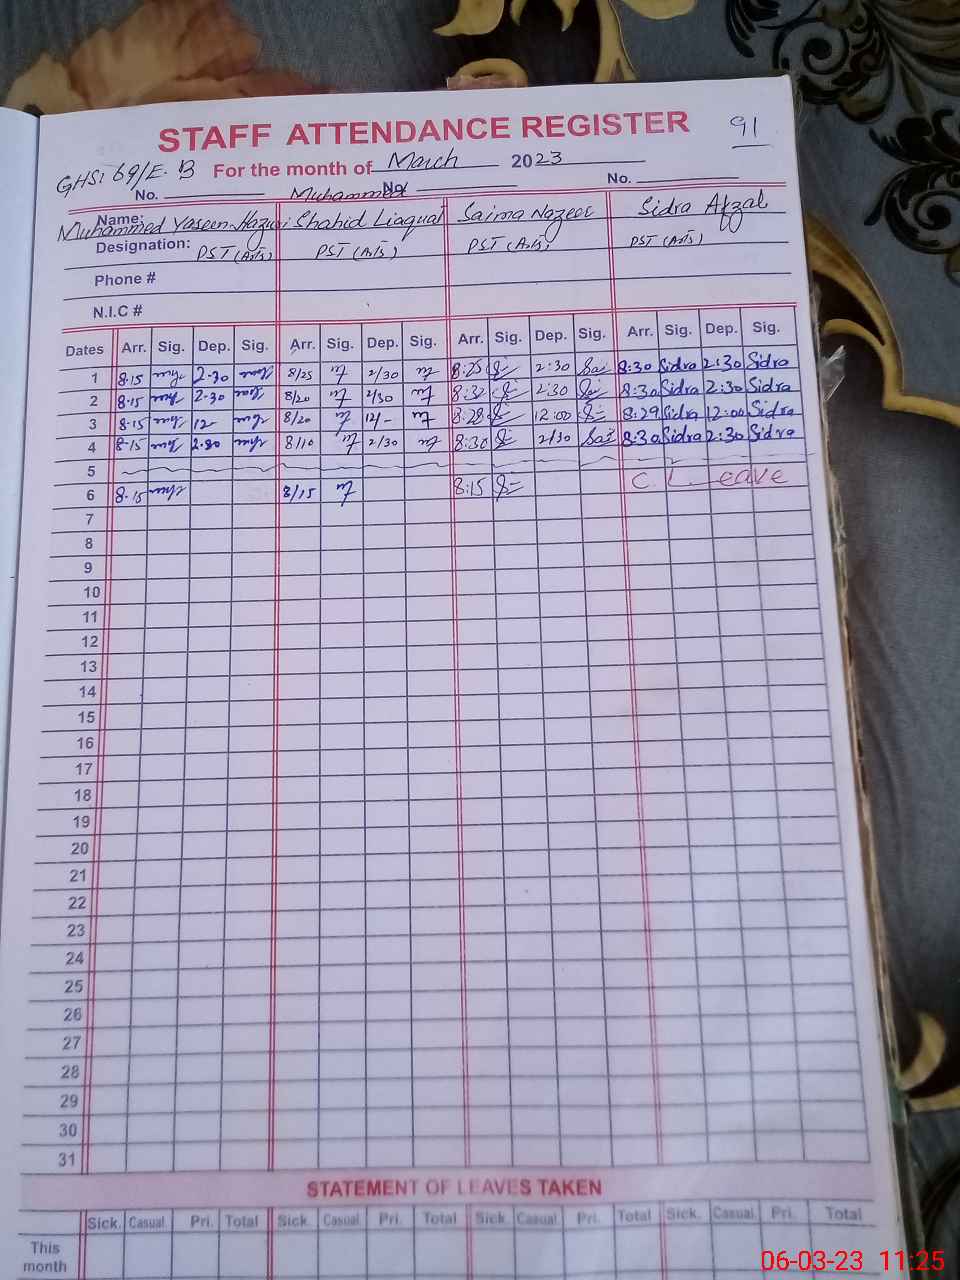 STAFF ATTENDANCE REGISTER 91
GHSS 69/E.B For the month of March 2023
No. Muhammad No. No.
Name: Muhammed Yaseen Shahid Liaquat Saima Nazeer Sidra Afzal
Designation: PST (Arts) PST (Arts) PST (Arts) PST (Arts)
Phone #
N.I.C #
Dates Arr. Sig. Dep. Sig. Arr. Sig. Dep. Sig. Arr. Sig. Dep. Sig. Arr. Sig. Dep. Sig.
1 8.15 2.30 8/25 2/30 8:25 2:30 Sai 8:30 Sidra 2:30 Sidra
2 8.15 2.30 8/20 2/30 8:32 2:30 8:30 Sidra 2:30 Sidra
3 8.15 12 8/20 12/- 8:28 12:00 8:29 Sidra 12:00 Sidra
4 8.15 2.30 8/10 2/30 8:30 2/30 Sai 8:30 Sidra 2:30 Sidra
5
6 8.15 8/15 8:15 C. Leave
7
8
9
10
11
12
13
14
15
16
17
18
19
20
21
22
23
24
25
26
27
28
29
30
31
STATEMENT OF LEAVES TAKEN
Sick. Casual. Pri. Total Sick. Casual. Pri. Total Sick. Casual. Pri. Total Sick. Casual. Pri. Total
This month
06-03-23 11:25